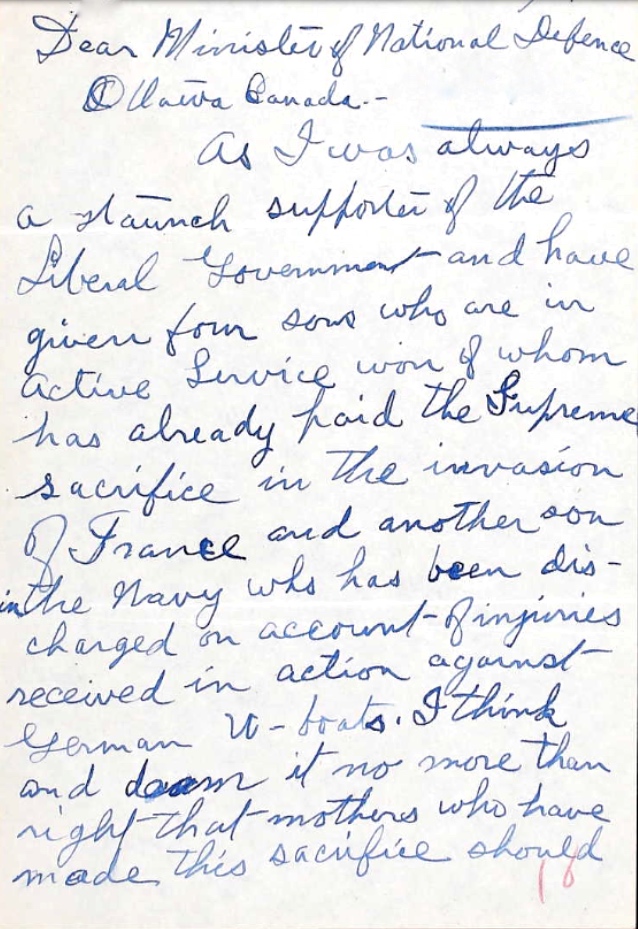 Dear Minister of National Defence
Ottawa Canada.-
As I was always
a staunch supporter of the
Liberal Government and have
given four sons who are in
active Service won of whom
has already paid the Supreme
sacrifice in the invasion
of France and another son
in the Navy who has been dis-
charged on account of injuries
received in action against
German U-boats. I think
and deem it no more than
right that mothers who have
made this sacrifice should
18